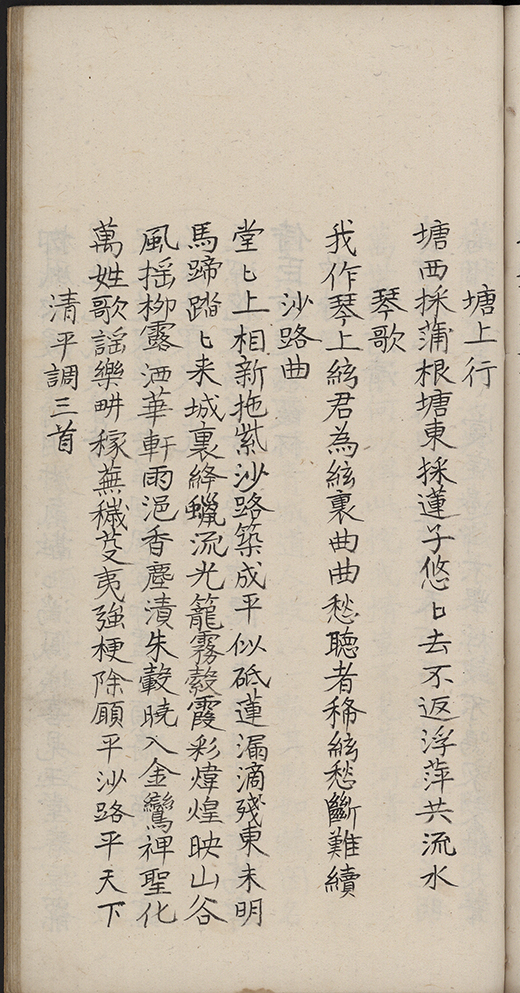 塘上行
塘西採蒲根塘東採蓮子悠〻去不返浮萍共流水
琴歌
我作琴上絃君為絃裏曲曲愁聽者稀絃愁斷難續
沙路曲
堂〻上相新拖紫沙路築成平似砥蓮漏滴殘東未明
馬蹄踏〻来城裏絳蠟流光籠霧縠霞彩煒煌映山谷
風揺柳露洒華軒雨浥香塵漬朱轂曉入金鑾禆聖化
萬姓歌謡樂畊稼蕪穢芟夷強梗除願平沙路平天下
清平調三首